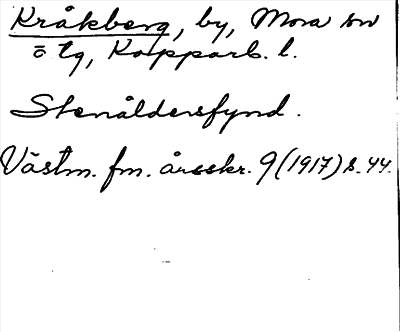 Kråkberg, by, Mora sn
o tg, Kopparb. l.
Stenåldersfynd.
Västm. fm. årsskr. 9 (1917) s. 44.